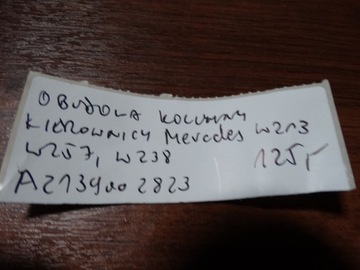 OBUDOWA KOLUMNY
KIEROWNICY Mercedes W213
W257, W238 125,-
A2139002823